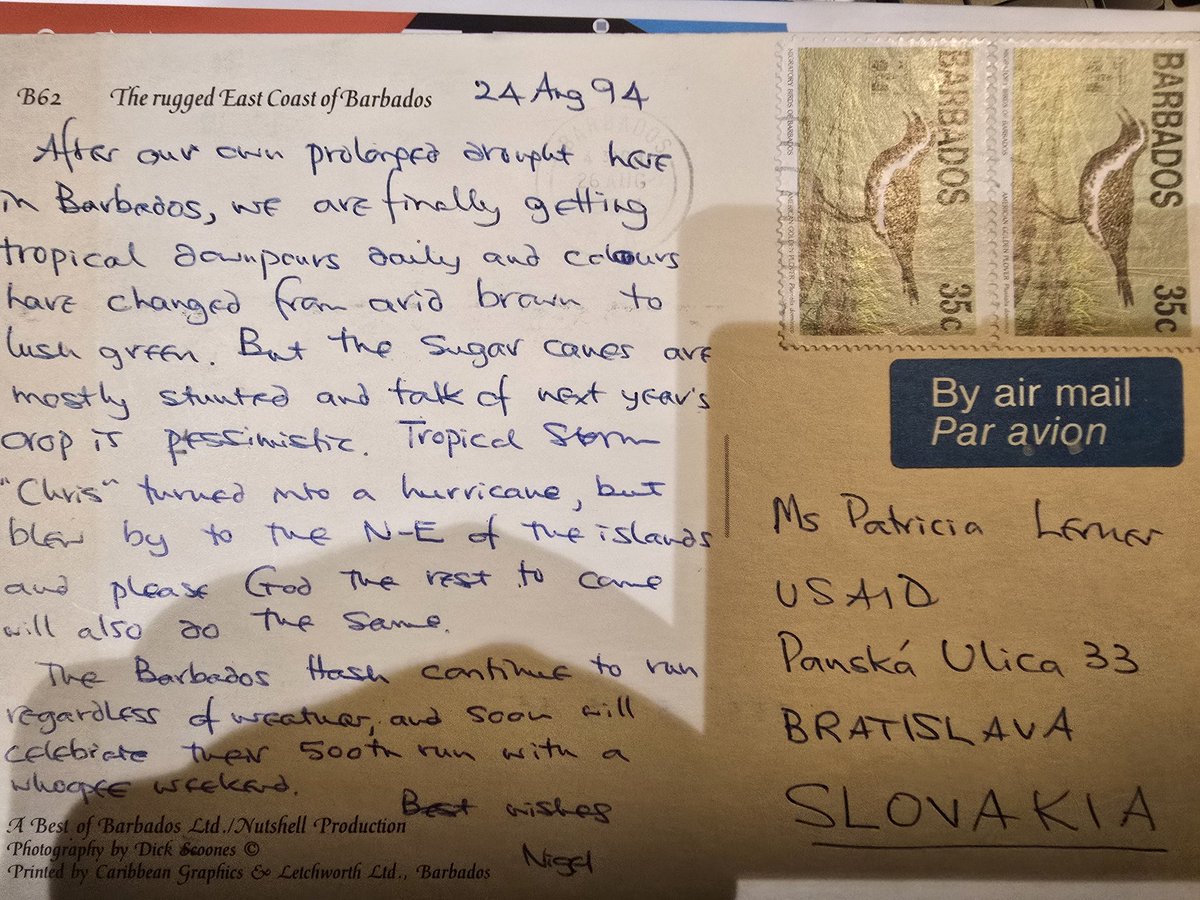 B62 The rugged East Coast of Barbados 24 Aug 94
After our own prolonged drought here
in Barbados, we are finally getting
tropical downpours daily and colours
have changed from arid brown to
lush green. But the sugar canes are
mostly stunted and talk of next year's
crop is pessimistic. Tropical Storm
"Chris" turned into a hurricane, but
blew by to the N-E of the islands
and please God the rest to come
will also do the same.
The Barbados Hash continue to run
regardless of weather, and soon will
celebrate their 500th run with a
whoopee weekend.
Best wishes
Nigel
A Best of Barbados Ltd./Nutshell Production
Photography by Dick Scoones ©
Printed by Caribbean Graphics & Letchworth Ltd., Barbados
BARBADOS
26 AUG
MIGRATORY BIRDS OF BARBADOS
AMERICAN GOLDEN PLOVER
BARBADOS
35c
MIGRATORY BIRDS OF BARBADOS
AMERICAN GOLDEN PLOVER
BARBADOS
35c
By air mail
Par avion
Ms Patricia Lerner
USAID
Panská Ulica 33
BRATISLAVA
SLOVAKIA